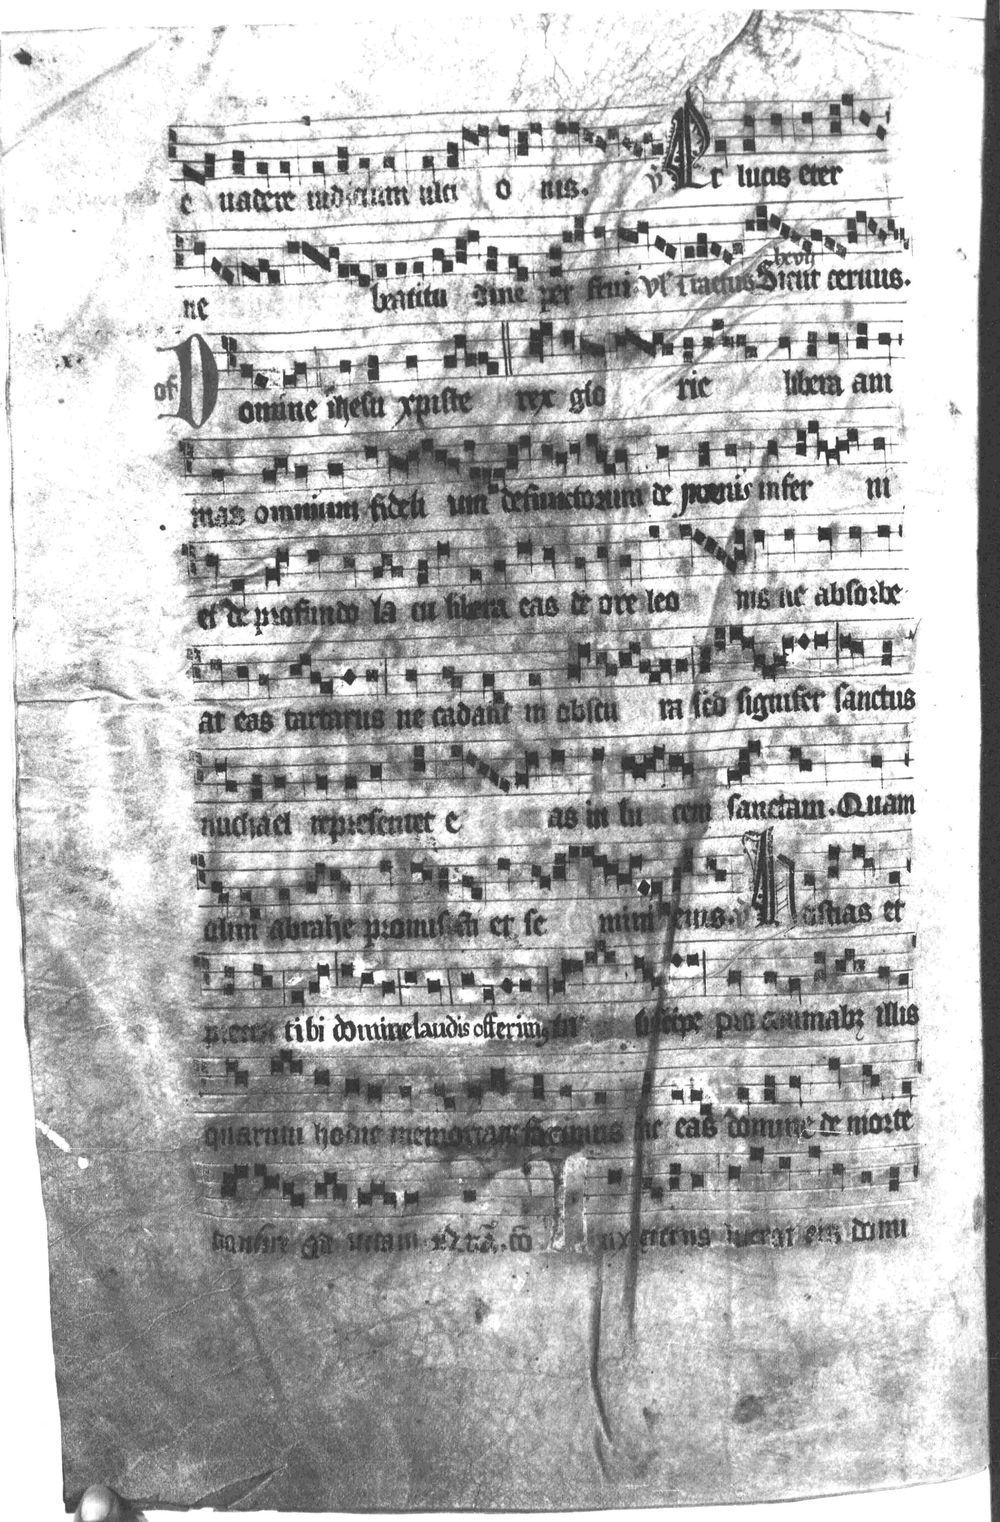 e uadere iudicium ulci o nis. v Et lucis eter
ne beatitu dine per frui. Vl Tractus Sicut ceruus.
of Domine ihesu xpiste rex glo rie libera ani
mas omnium fideli um defunctorum de penis infer ni
et de profundo la cu libera eas de ore leo nis ne absorbe
at eas tartarus ne cadant in obscu ra sed signifer sanctus
michael representet e as in lu cem sanctam. Quam
olim abrahe promisisti et se mini eius. v Hostias et
preces tibi domine laudis offerim9 tu suscipe pro animabz illis
quarum hodie memoriam facimus fac eas domine de morte
transire ad uitam co Lux eterna luceat eis domi